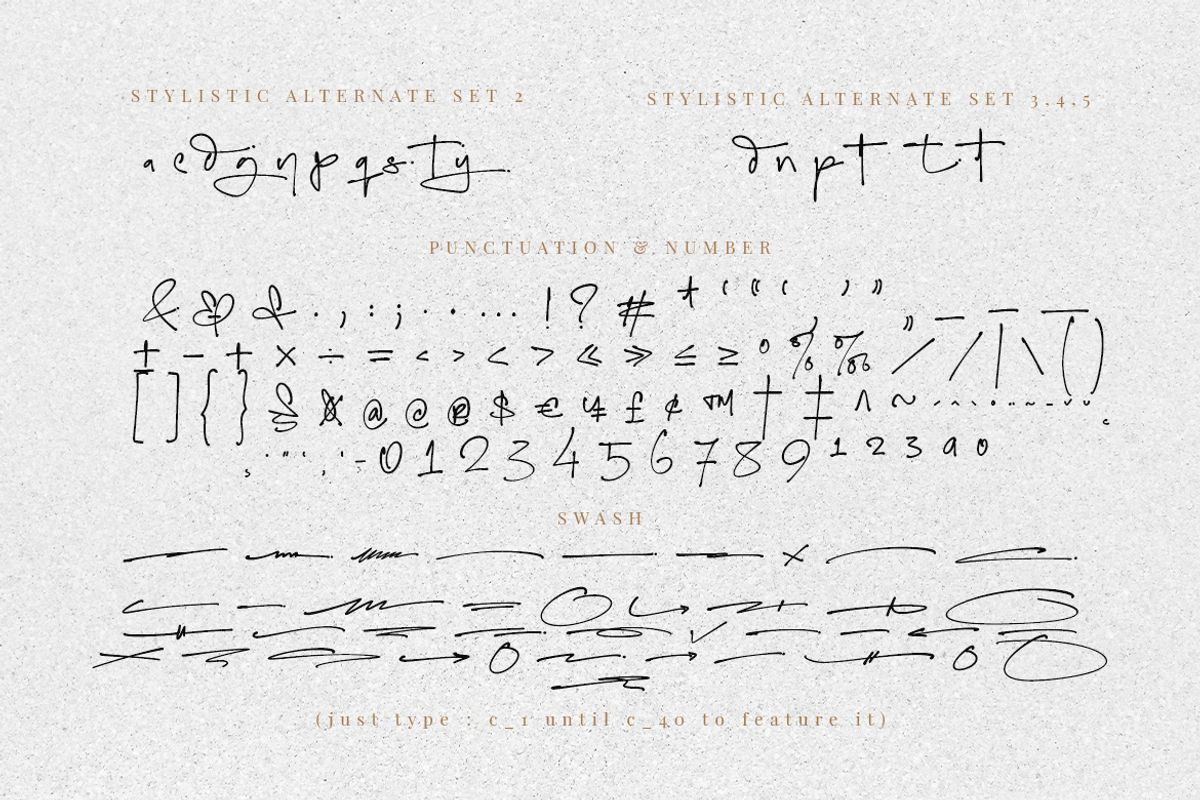 STYLISTIC ALTERNATE SET 2
STYLISTIC ALTERNATE SET 3,4,5
a c d g n p q s t y
d n p t t t
PUNCTUATION & NUMBER
& . , : ; · • ... ! ? # * ‘ “ ‘ ’ ”
+ − + × ÷ = < > < > « » ≤ ≥ ° % ‰ ⁄ / | \ ( )
[ ] { } § ¤ @ @ @ $ € ¥ £ ¢ ™ † ‡ ^ ~
0 1 2 3 4 5 6 7 8 9 1 2 3 a o
SWASH
(just type : c_1 until c_40 to feature it)